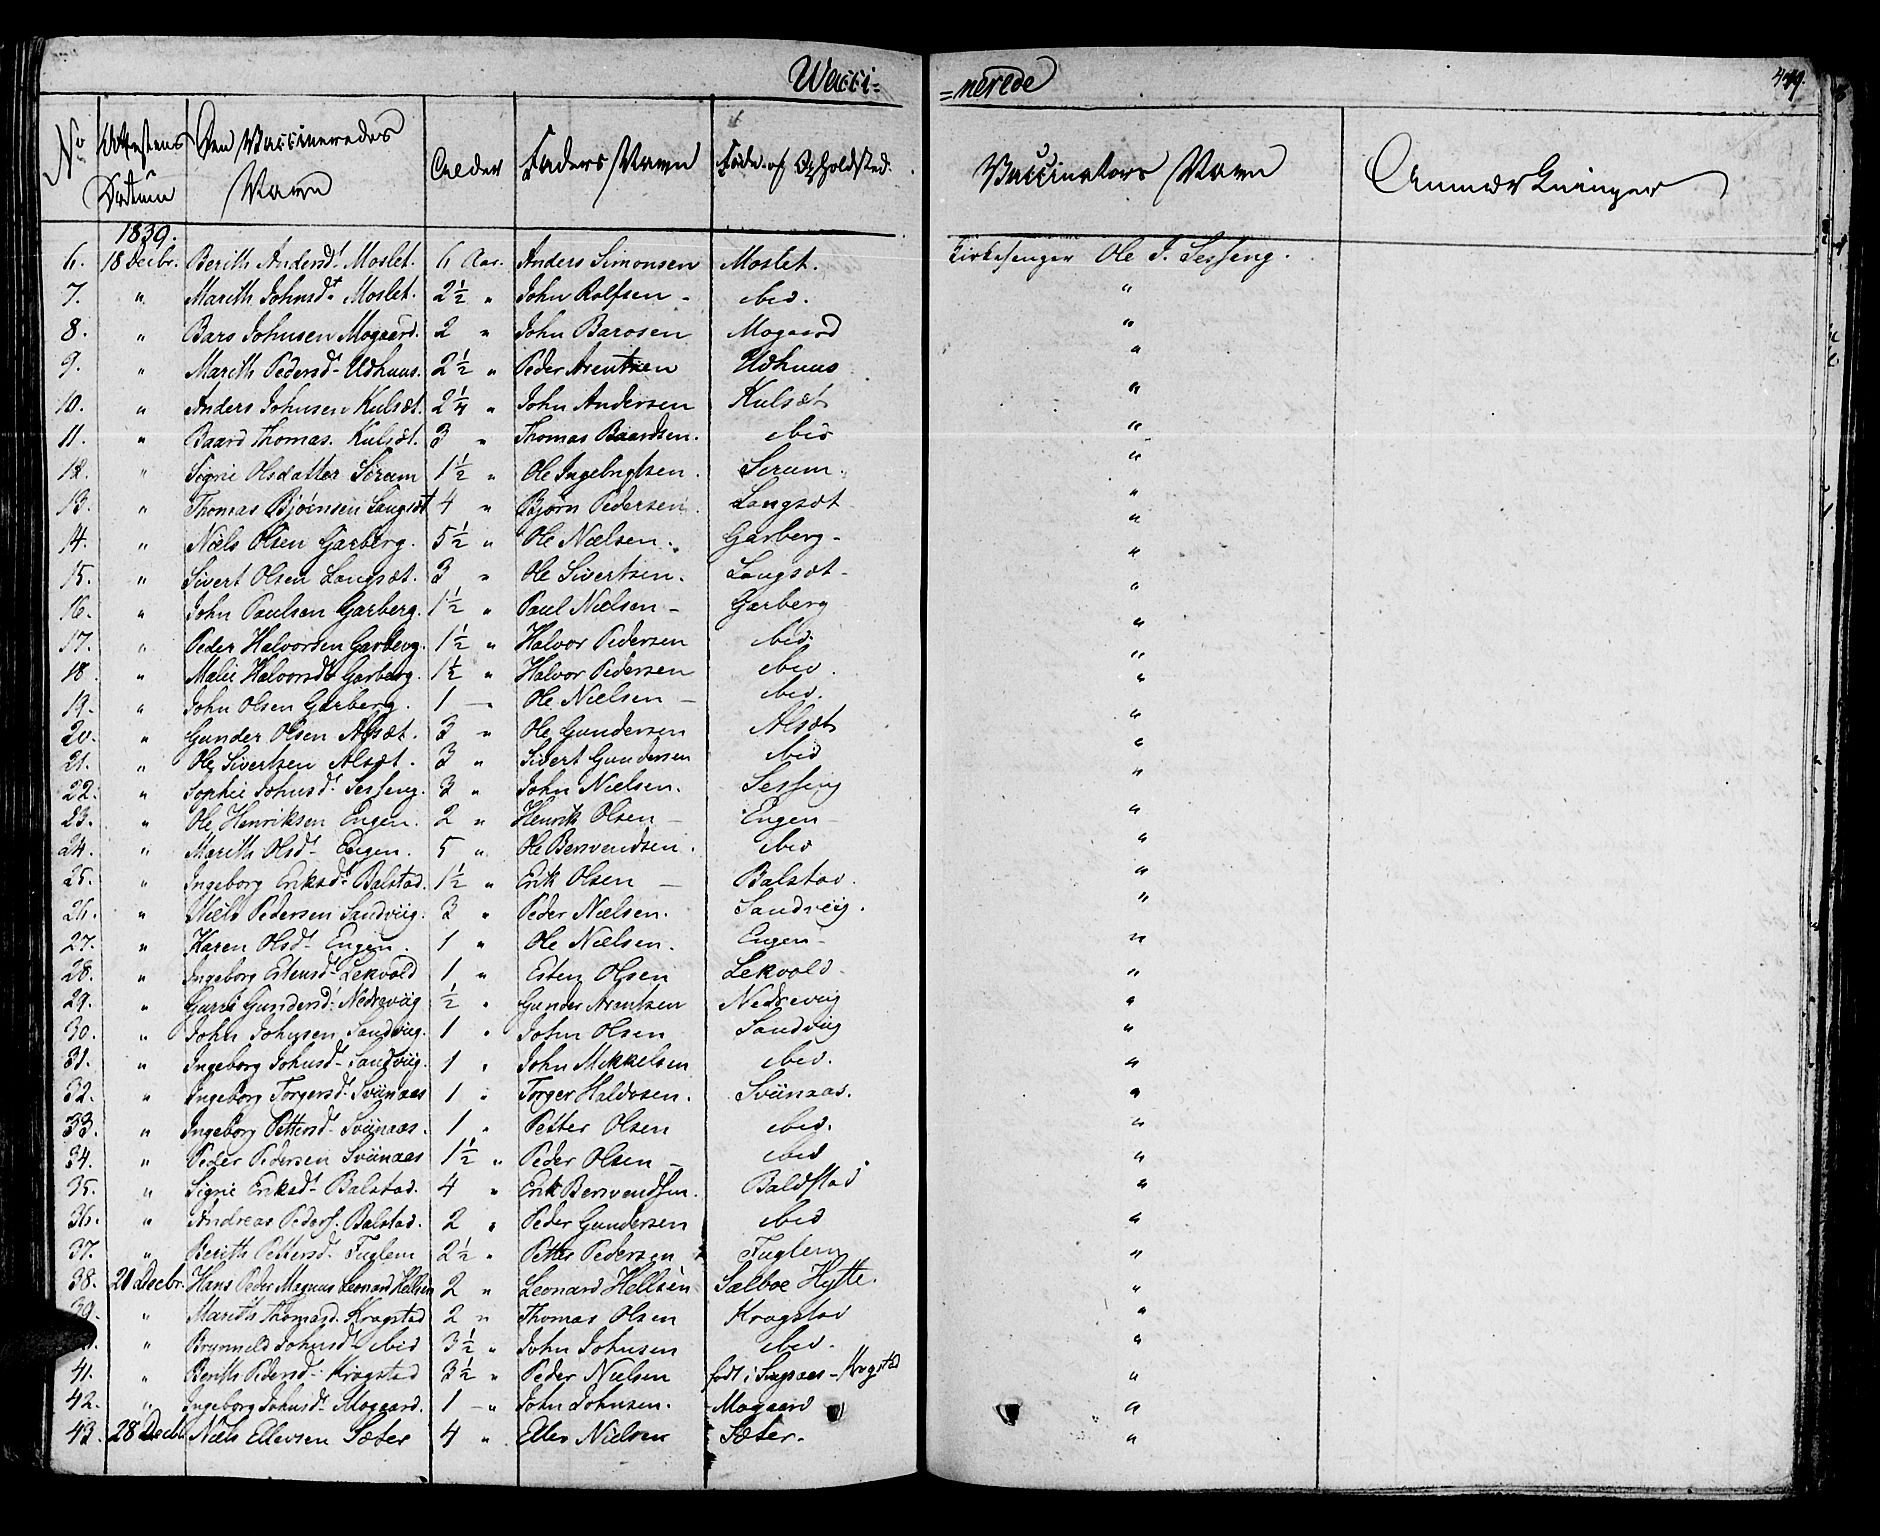 Wacci=
=nerede
No
Attestens Datum
Den Vaccineredes Navn
Alder
Faders Navn
Føde og Opholdsted.
Vaccinators Navn
Anmærkninger
1839.
6. 18 Decbr. Berith Andersd! Moslet. 6 Aar. Anders Simonsen Moslet. Kirkesanger Ole J. Sesseng.
7. " Marith Johnsd! Moslet. 2 1/2 " John Rolfsen - ibid. "
8. " Bars Johnsen Mogaard. 2 " John Barosen Mogaard "
9. " Marith Pedersd! Udhuus. 2 1/2 " Peder Arentsen Udhuus "
10. " Anders Johnsen Kulsæt. 2 1/4 " John Andersen Kulsæt "
11. " Baard Thomas. Kulsæt. 3 " Thomas Baardsen. ibid "
12. " Signe Olsdatter Serum 1 1/2 " Ole Ingebrigtsen. Serum. "
13. " Thomas Bjørnsen Langsæt 4 " Bjørn Pedersen. Langsæt "
14. " Niels Olsen Garberg. 5 1/2 " Ole Nielsen. Garberg - "
15. " Sivert Olsen Langsæt. 3 " Ole Sivertsen. Langsæt - "
16. " John Paulsen Garberg. 1 1/2 " Paul Nielsen - Garberg "
17. " Peder Halvorsen Garberg. 1 1/2 " Halvor Pedersen ibid "
18. " Malii Halvorsd! Garberg. 1 1/2 " Halvor Pedersen ibid. "
19. " John Olsen Garberg. 1 - " Ole Nielsen - ibid. "
20. " Gunder Olsen Alsæt. 3 " Ole Gundersen Alsæt "
21. " Ole Sivertsen Alsæt. 3 " Sivert Gundersen ibid "
22. " Sophie Johnsd! Sesseng. 3 " John Nielsen. Sesseng "
23. " Ole Henriksen Engen. 2 " Henrik Olsen - Engen - "
24. " Marith Olsd! Engen. 5 " Ole Bersvendsen. ibid "
25. " Ingeborg Eriksd! Balstad. 1 1/2 " Erik Olsen - Balstad. "
26. " Niels Pedersen Sandviig. 3 " Peder Nielsen. Sandviig. "
27. " Karen Olsd! Engen. 1 " Ole Nielsen. Engen - "
28. " Ingeborg Estensd! Lekvold 1 " Esten Olsen Lekvold - "
29. " Gunders! Nedreviig 1/2 " Gunder Arentsen Nedreviig "
30. " John Johnsen Sandviig. 1 " John Olsen Sandviig "
31. " Ingeborg Johnsd! Sandviig. 1 " John Mikkelsen ibid. "
32. " Ingeborg Torgersd! Sviinaas 1 " Torger Haldosen. Sviinaas. "
33. " Ingeborg Pettersd! Sviinaas. 1 " Petter Olsen ibid. "
34. " Peder Pedersen Sviinaas 1 1/2 " Peder Olsen - ibid "
35. " Signe Eriksd! Balstad. 4 " Erik Bersvendsen. Baldstad "
36. " Andreas Peders. Balstad. 2 " Peder Gundersen ibid "
37. " Berith Pettersd! Fuglem 2 1/2 " Petter Pedersen Fuglem "
38. 21 Decbr. Hans Peder Magnus Leonard Hellsen 2 " Leonard Hellsen Sælboe Hytte. "
39. " Marith Thomasd. Kragstad 2 " Thomas Olsen Kragstad "
" Brynnild Johnsd! ibid 3 1/2 " John Johnsen ibid. "
41. " Berith Pedersd! Kragstad 3 1/2 " Peder Nielsen født i Singsaas - Kragstad "
42. " Ingeborg Johnsd! Mogaard. 1 - " John Johnsen. Mogaard "
43. 28 Decbr Niels Ellevsen Sæter 4 " Ellev Nielsen Sæter. "